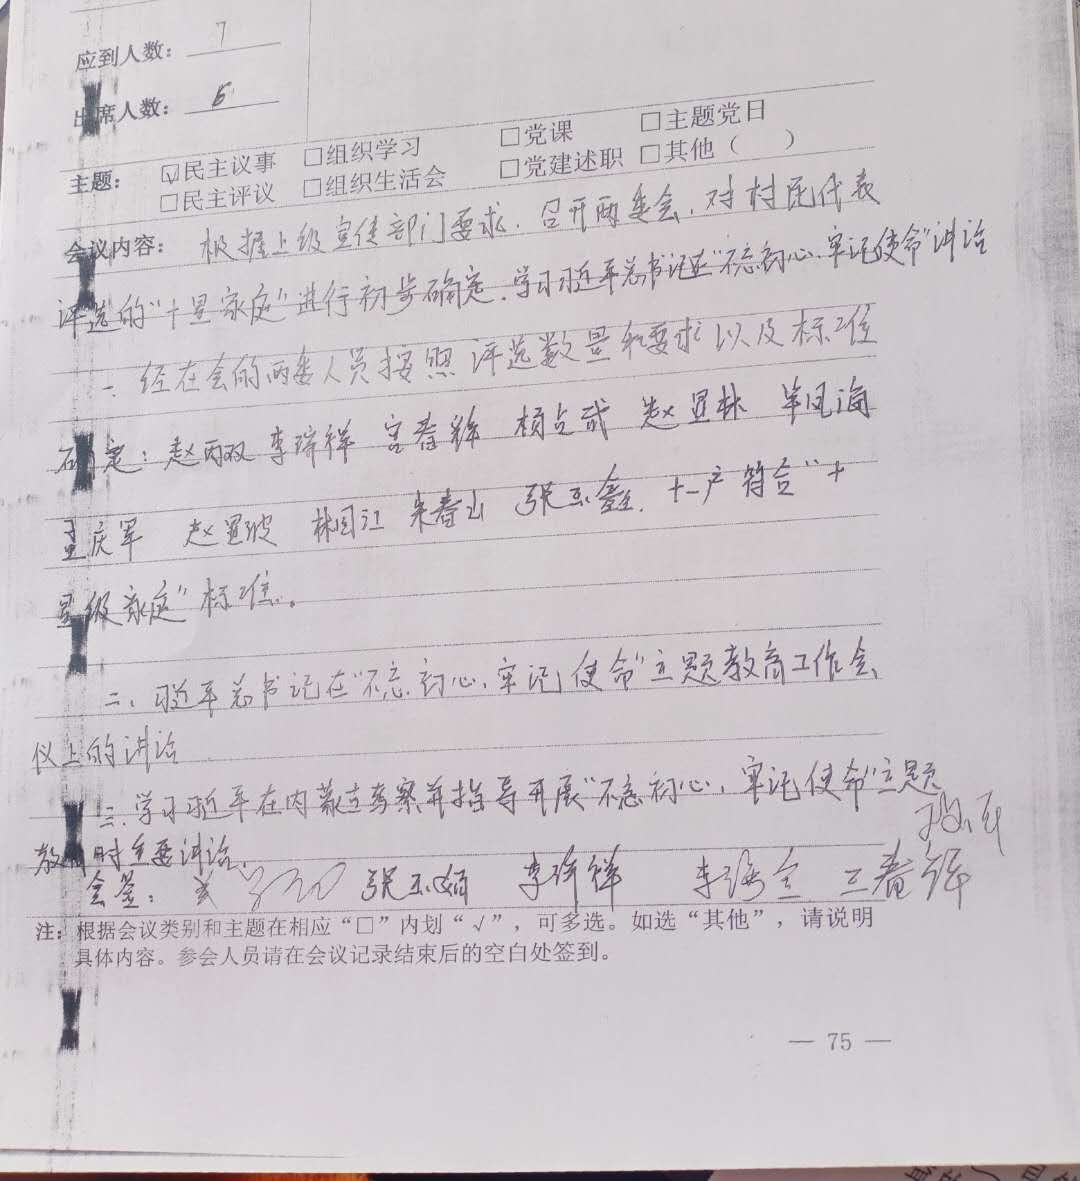 应到人数: 7
出席人数: 6
主题: ☑民主议事 □组织学习 □党课 □主题党日
□民主评议 □组织生活会 □党建述职 □其他（ ）
会议内容: 根据上级宣传部门要求，召开两委会，对村民代表
评选的“十星家庭”进行初步确定，学习习近平总书记在“不忘初心、牢记使命”讲话
一、经在会的两委人员按照评选数量和要求以及标准
确定：赵丙双 李瑞祥 宫春锋 杨占武 赵显林 毕凤海
孟庆军 赵显波 林国江 朱春山 张玉鑫，十一户符合“十
星级家庭”标准。
二、习近平总书记在“不忘初心、牢记使命”主题教育工作会
仪上的讲话
三、学习习近平在内蒙古考察并指导开展“不忘初心，牢记使命”主题
教育时重要讲话。
会签： 张玉娟 李瑞祥 李海全 王春锋
注: 根据会议类别和主题在相应“□”内划“√”，可多选。如选“其他”，请说明
具体内容。参会人员请在会议记录结束后的空白处签到。
— 75 —